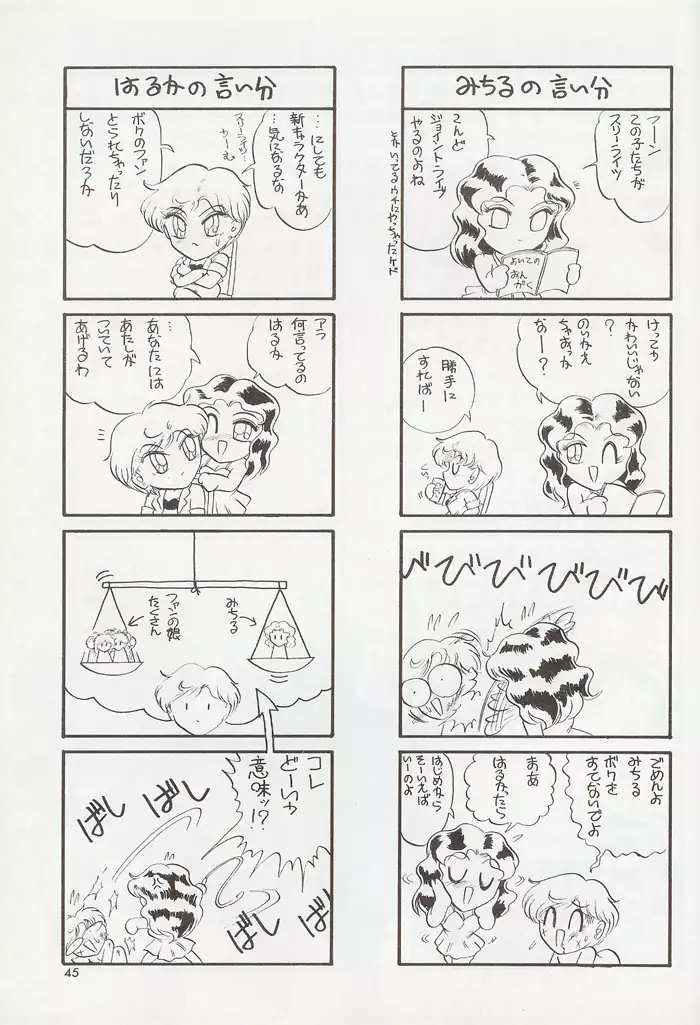 みちるの言い分
アーン
この子たちが
スリーライツ
こんど
ジョイントライヴ
やるのよね
けっこー
かわいいじゃない
?
のりかえ
ちゃおっか
なー?
勝手に
すればー
びびびびびび
ごめんよ
みちる
ボクを
すてないでよ
まあ
はるかったら
はじめから
そーいえば
いーのよ
はるかの言い分
…にしても
新キャラクターかあ
…気になるな
スリーライツ…
うーむ
ボクのファン
とられちゃったり
しないだろうか
アラ
何言ってるの
はるか
…
あなたには
あたしが
ついていて
あげるわ
みちる
ファンの娘
たくさん
コレ
どーゆー
意味ッ!?
ばし
ばし
ばし
ばし
45